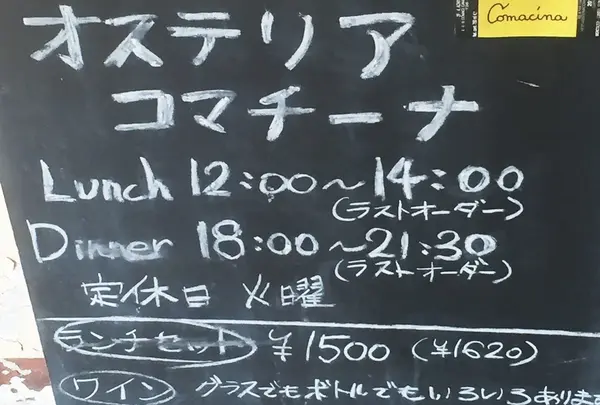 Comacina
オステリア
コマチーナ
Lunch 12:00〜14:00
(ラストオーダー)
Dinner 18:00〜21:30
(ラストオーダー)
定休日 火曜
ランチセット ¥1500 (¥1620)
ワイン グラスでもボトルでもいろいろあります